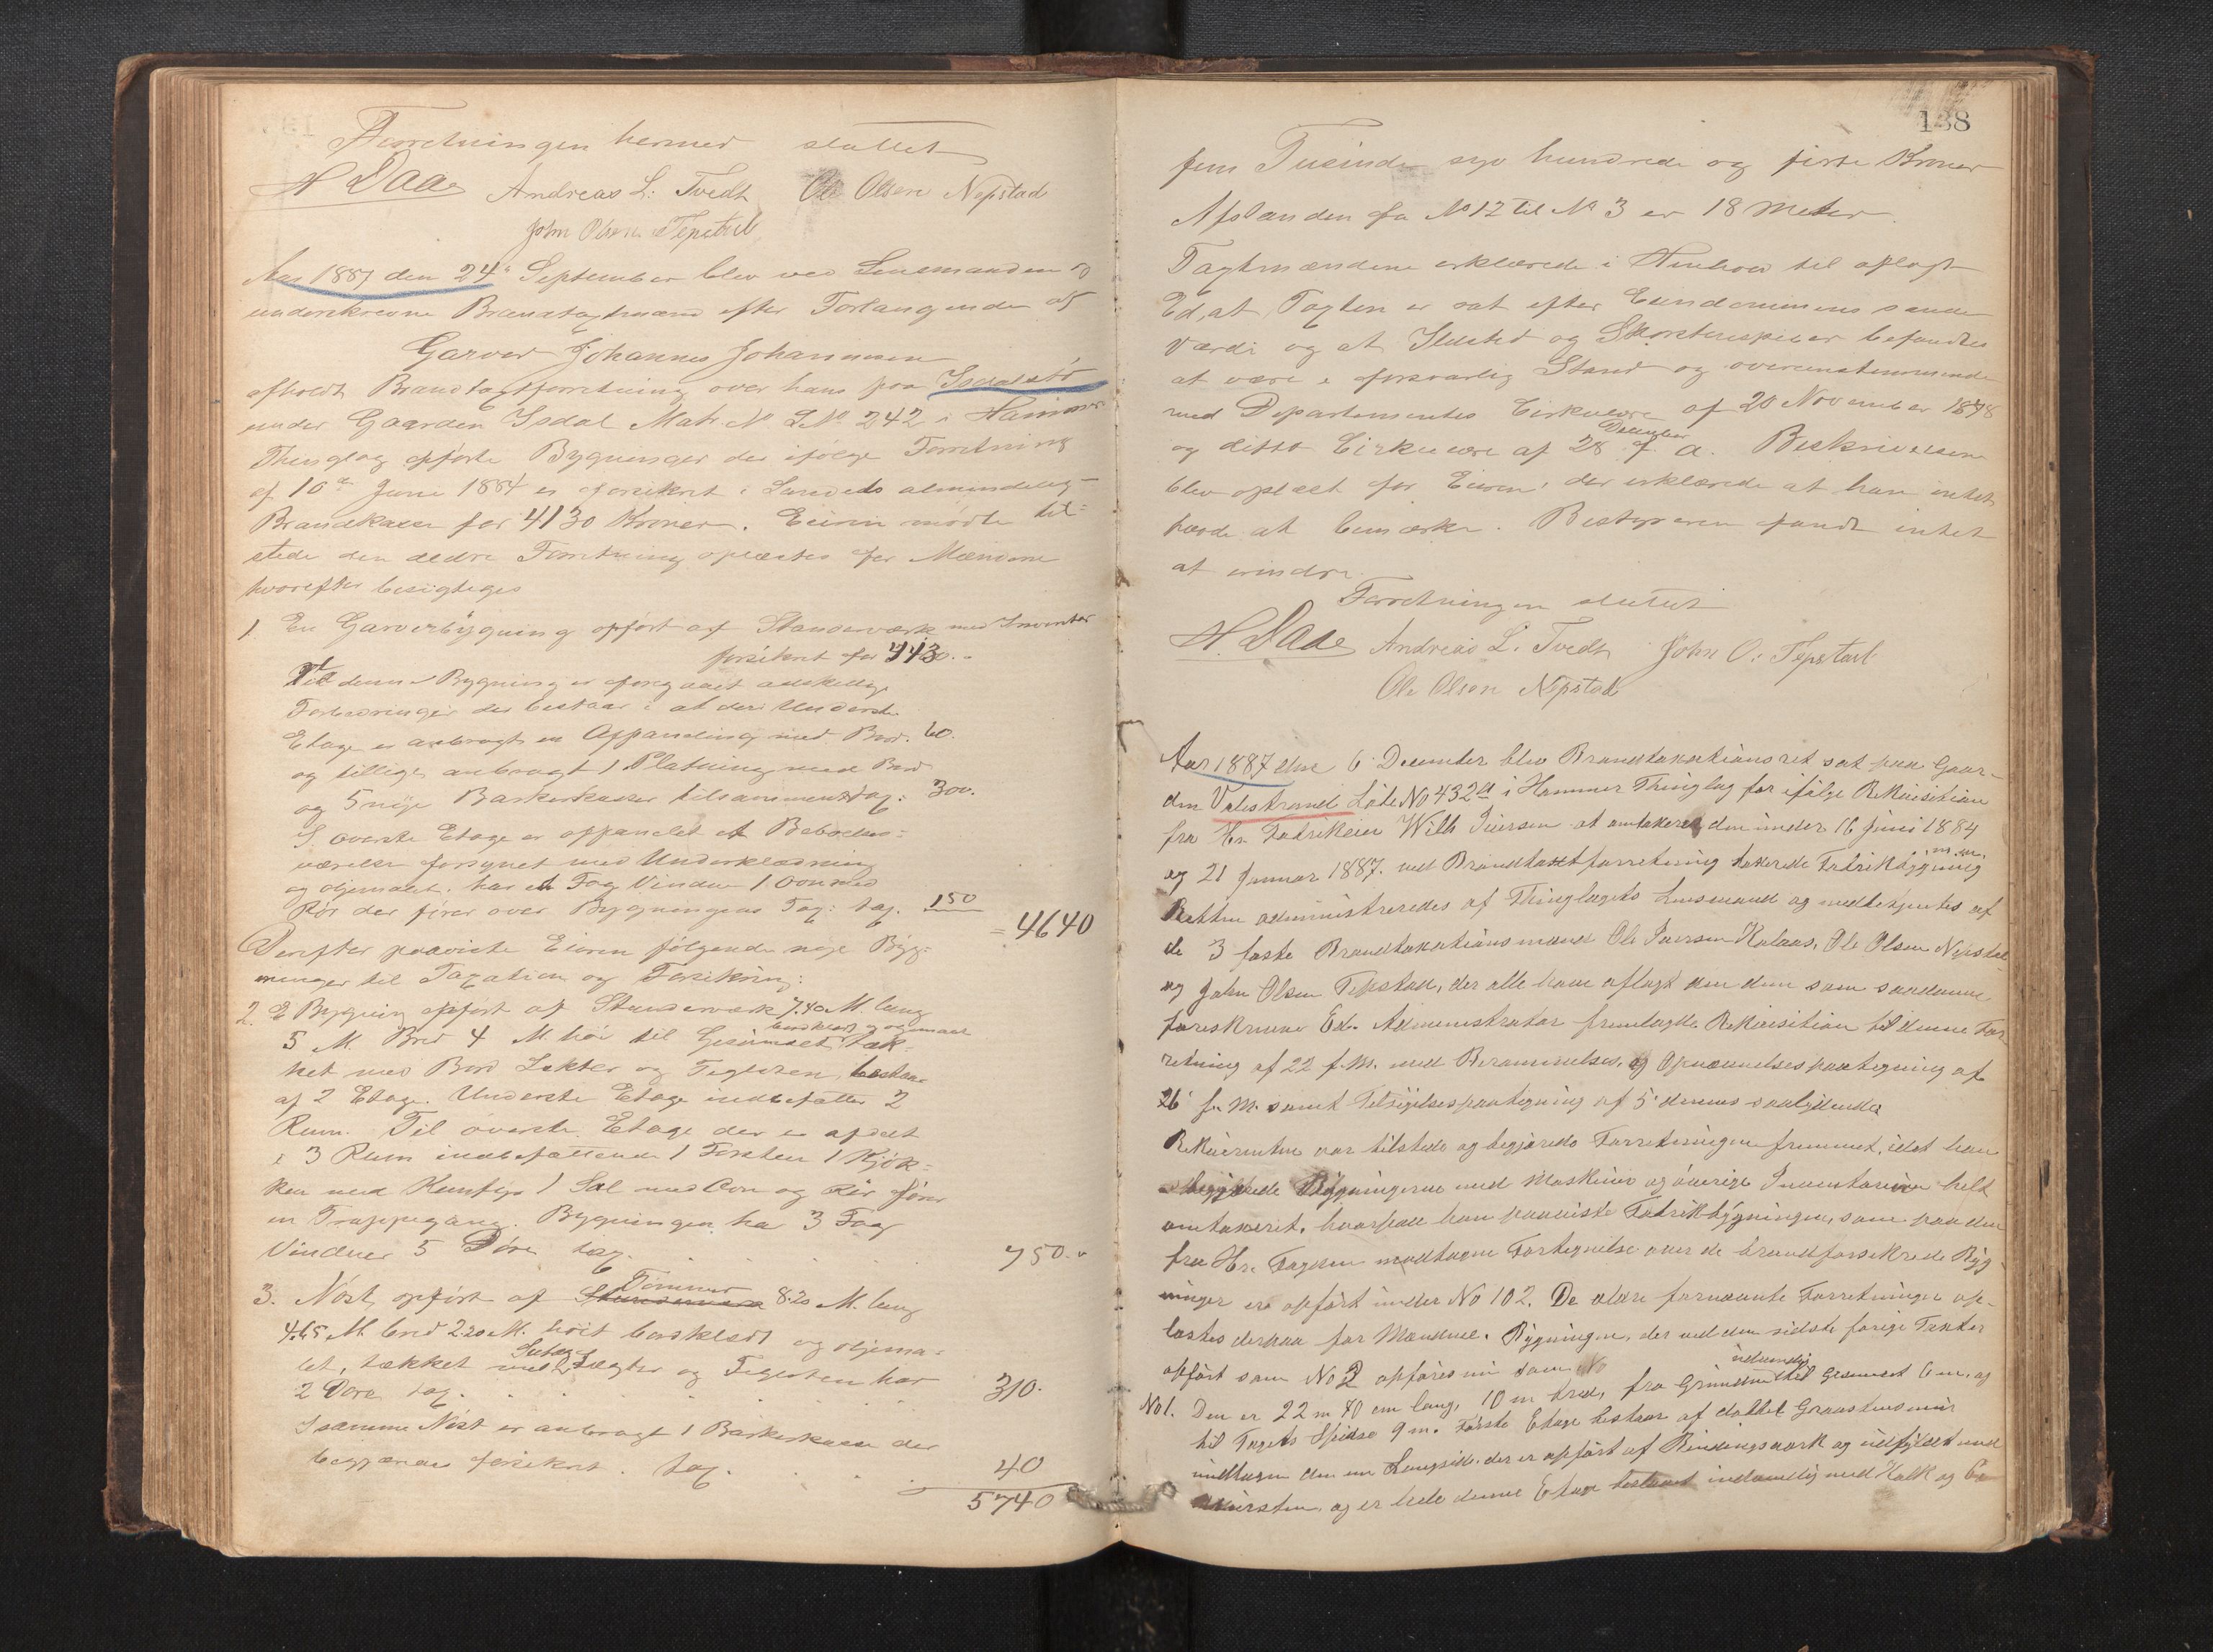 Forretningen hermed sluttet
H Daae Andreas L: Tvedt Ole Olsen Nepstad
John Olsen Tepstad
Aar 1887 den 24de September blev ved Lensmanden og
underskrevne Brandtagtmænd efter Forlangende af
Garver Johannes Johannesen
afholdt Brandtagtforretning over hans paa Isdalstø
under Gaarden Isdal Matr. No LNo 242 i Hammer
Thinglag opførte Bygninger der ifølge Forretning
af 10de Juni 1884 er forsikret i Landets almindelig
Brandkasse for 4130 Kroner. Eieren mødte til=
stede den ældre Forretning oplæstes for Mændene
hvorefter besigtiges
1. En Garverbygning opført af Standerværk med Inventar
forsikret for 4130.-
Ved denne Bygning er foregaaet adskellige
Forbedringer der bestaar i at den Underste
Etage er anbragt en Afpaneling med Bord. 60.
og tillige anbragt 1 Platning med Bord
og 5 nye Barkekasser tilsammen tag: 300.
I øverste Etage er oppanelet et Beboelses=
værelse forsynet med Underklædning
og oljemalet. har et Fag Vinduer 1 Oon med
Rør der fører over Bygningens Tag: tag. 150
= 4640
Derefter paaviste Eieren følgende nye Byg=
ninger til Taxation og Forsikring:
2. E Bygning opført af Standerværk 7.40 M. lang
5 M. Bred 4 M. høi til Gesimset bordklædt og oljemalt tæk-
ket med Bord Lekter og Teglsten, bestaar
af 2 Etage. Underste Etage indbefatter 2
Rum. Til øverste Etage der er afdelt
i 3 Rum indbefattende 1 Forsten 1 Kjøk=
ken med Komfyr 1 Sal med Oon og Rør fører
en Trappegang. Bygningen har 3 Fag
Vinduer 5 Døre tag. 750.-
3. Nøst, opført af Tømmer 8.20 M. lang
4.65 M. bred 2.20 M. høit bordklædt og oljema=
let, tækket med Sutag Lægter og Teglsten har
2 Døre tag. 310.
I samme Nøst er anbragt 1 Barkekasse der
begjæres forsikret. tag. 40
5740
138
fem Tusinde syv hundrede og førti Kroner
Afstanden fra No 12 til No 3 er 18 Meter.
Tagtmændene erklærede i Henhold til aflagt
Ed, at Tagten er sat efter Eiendommens sande
Værdi og at Ildsted og Skorstenspiber befandtes
at være i forsvarlig Stand og overensstemmende
med Departementets Cirkulære af 20 November 1878
og ditto Cirkulære af 28 December f. a. Beskrivelsen
blev oplæst for Eieren, der erklærede at han intet
havde at bemærke. Bestyreren fandt intet
at erindre.
Forretningen sluttet
H. Daae Andreas L. Tvedt John O: Tepstad
Ole Olsen Nepstad
Aar 1887 den 6 December blev Brandtaxationsret sat paa Gaar-
den Valestrand LøbeNo 432a i Hammer Thinglag for ifølge Rekvisition
fra Hr. Fabrikeier Wilh Iversen at omtaxere den under 16 Juni 1884
og 21 Januar 1887. ved Brandtaxtforretning taxerede Fabrikbygning m.m.
Retten administreredes af Thinglagets Lensmand og medbetjentes af
de 3 faste Brandtaxationsmænd Ole Iversen Kalaas, Ole Olsen Nepstad
og John Olsen Tepstad, der alle have aflagt den dem som saadanne
foreskrevne Ed. Administrator fremlagde Rekvisition til denne For
retning af 22 f.m. med Berammelses og Opnævnelsespaategning af
26 f. M. samt Tilsigelsespaategning af 5 dennes saalydende
Rekvirenten var tilstede og begjærede Forretningen fremmet, idet han
begjærede Bygningerne med Maskiner og øvrige Inventarier helt
omtaxeret, hvorpaa han paaviste Fabrikbygningen, som paa den
fra Hr. Fogden modtagne Fortegnelse over de brandforsikrede Byg
ninger er opført under No 102. De ældre fornævnte Forretninger op-
læstes derpaa for Mændene. Bygningen, der ved den sidste forige Taxter
opført som No 2 opføres nu som No
No 1. Den er 22 m 70 cm lang, 10 m bred, fra Grunden udvendig til Gesimset 6 m, og
til Tagets Spidse 9 m. Første Etage bestaar af dobbel Graastensmur
undtagen den ene Langside der er opført af Bindingsværk og udfyldt med
Mursten, og er hele denne Etage beslaaet indvendig med Kalk og Ce